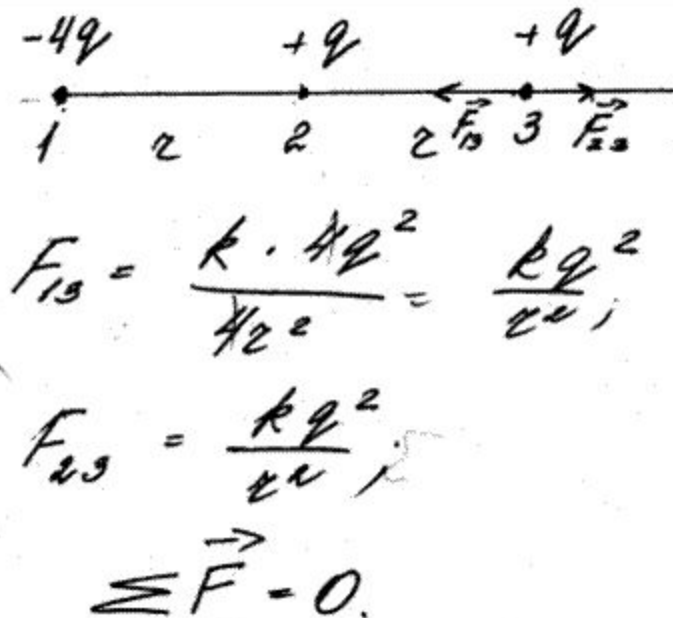 -4q +q +q
1 r 2 r F₁₃ 3 F₂₃
F₁₃ = k · 4q² / 4r² = kq² / r²;
F₂₃ = kq² / r²;
ΣF⃗ = 0.